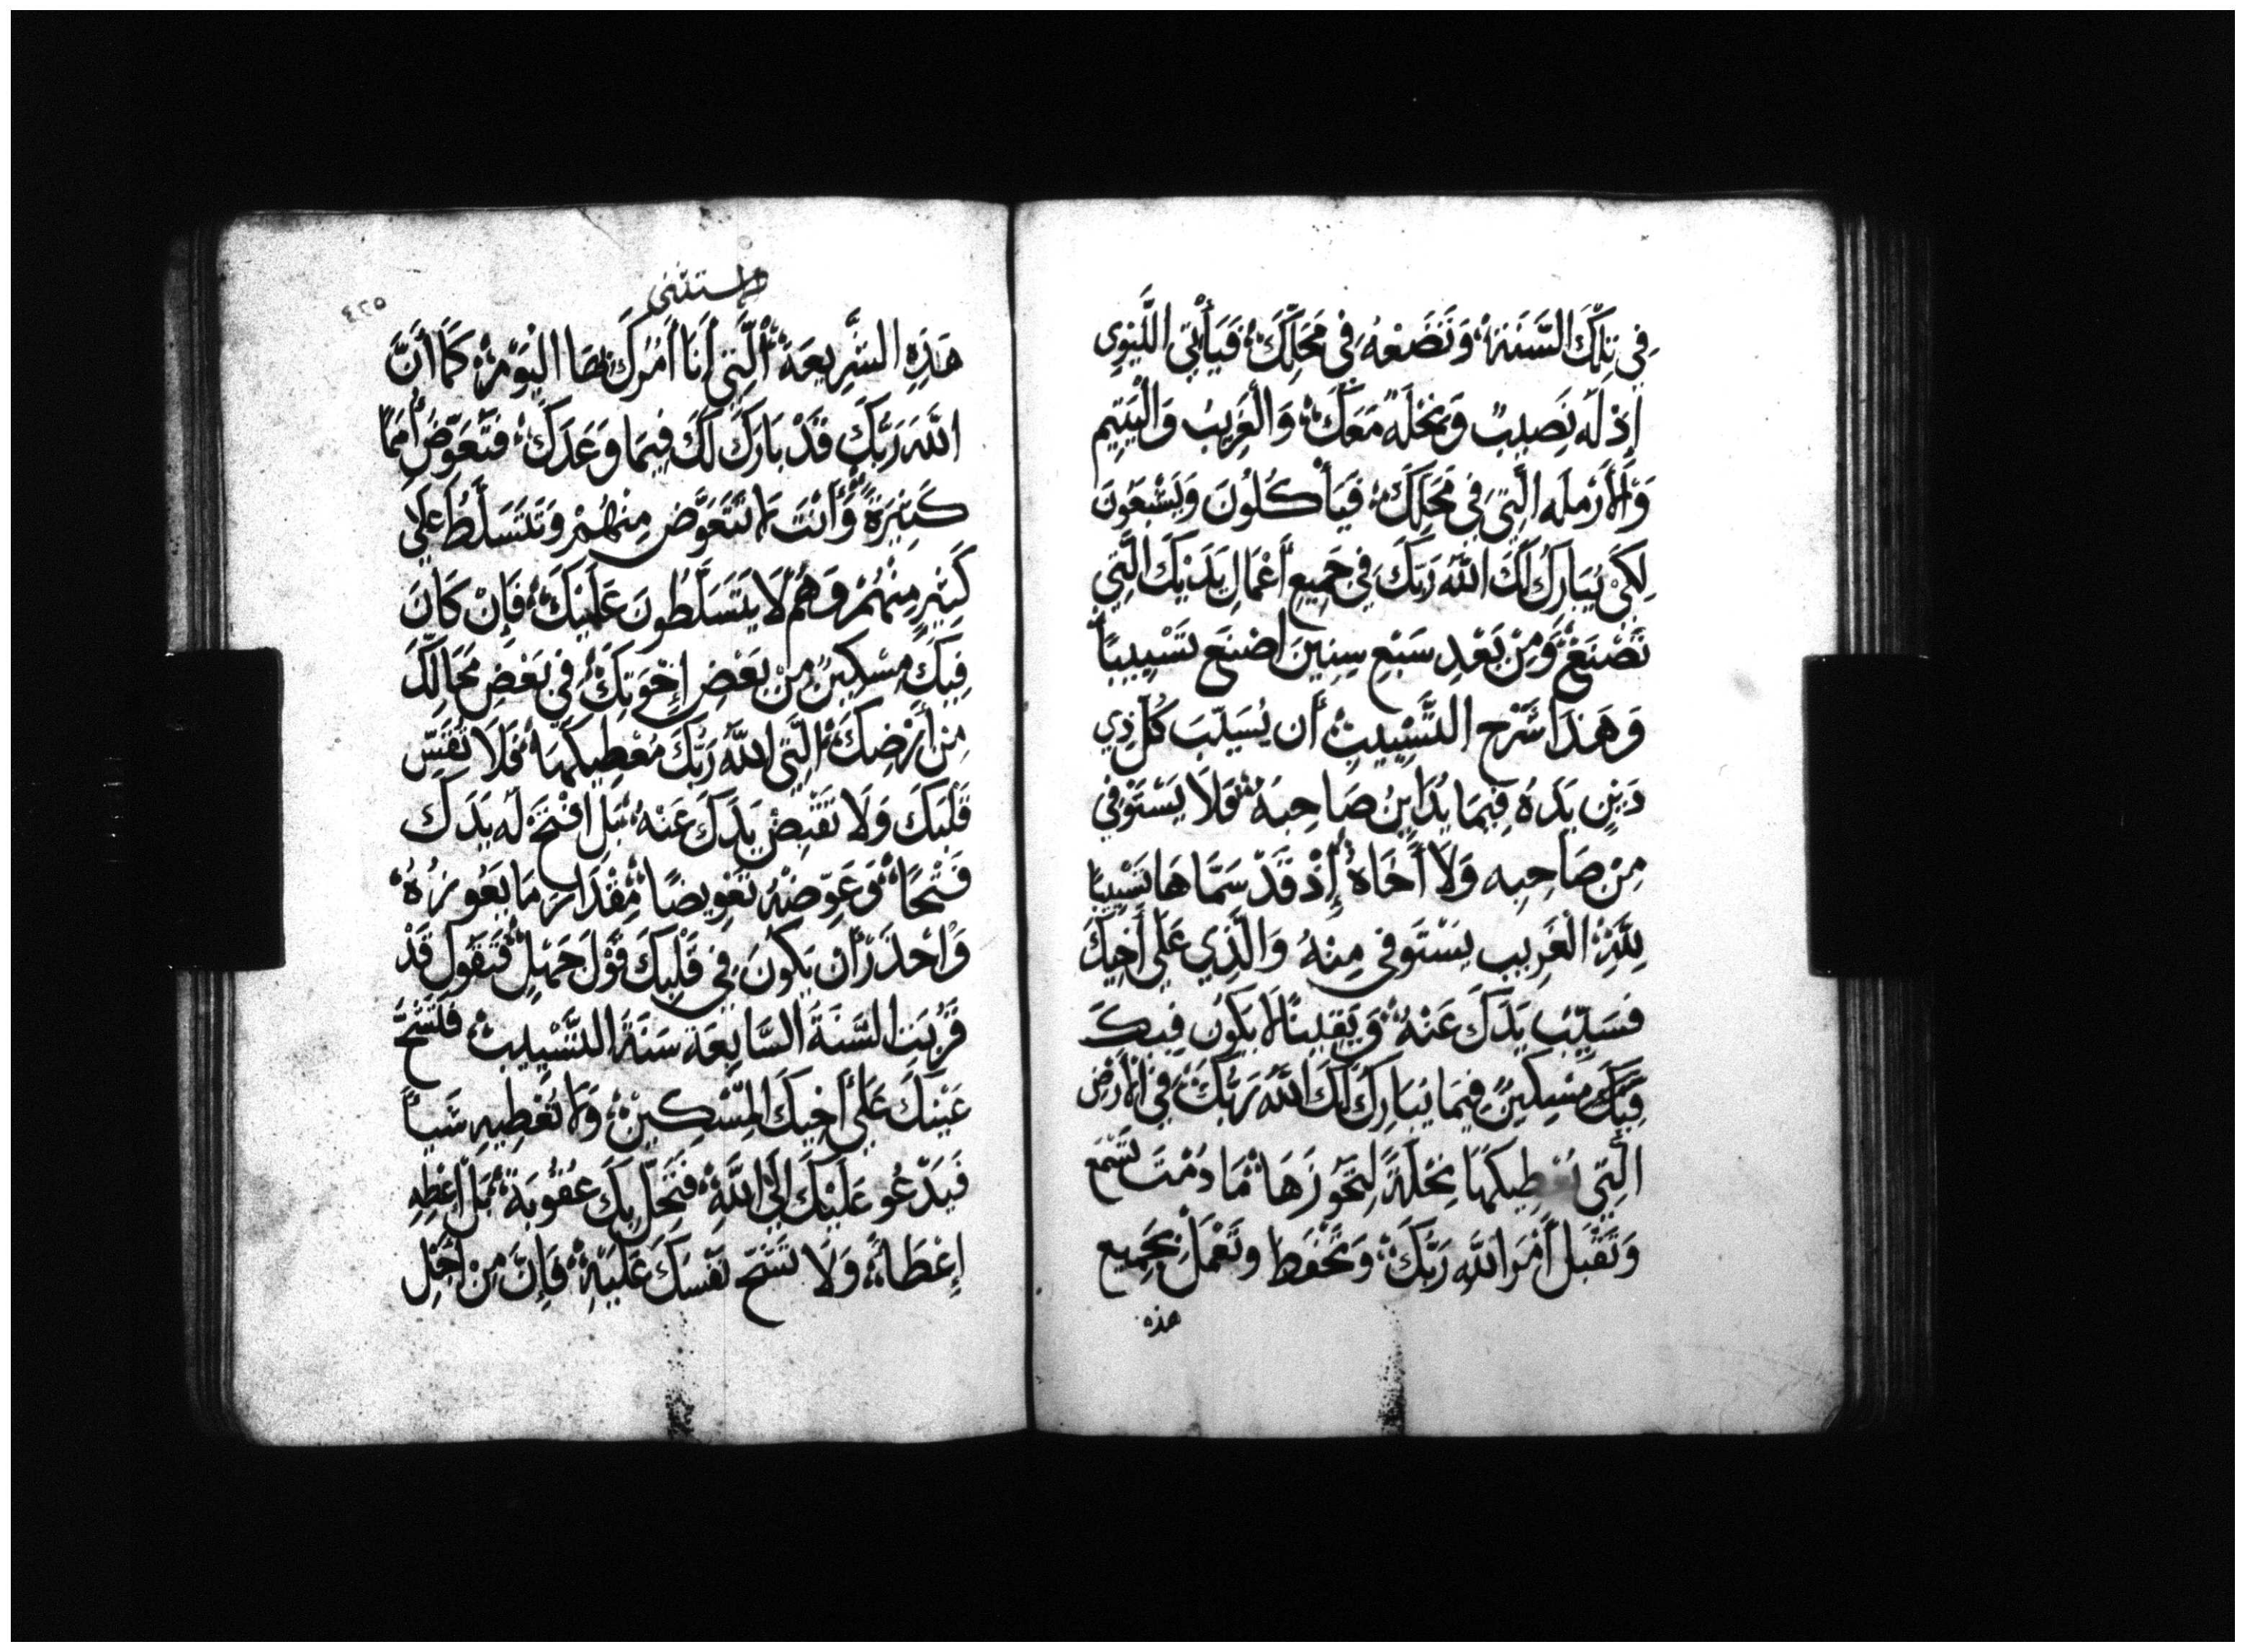 فِي تِلْكَ السَّنَةِ وَتَضَعْهُ فِي مَحَلِّكَ فَيَأْتِي اللَّيْوِي
إِذْ لَهُ نَصِيبٌ وَنِحْلَةٌ مَعَكَ وَالْغَرِيبُ وَالْيَتِيم
وَالأَرْمَلَه الَّتِي فِي مَحَلِّكَ فَيَأْكُلُونَ وَيَشْبَعُونَ
لِكَيْ يُبَارِكَ لَكَ اللَّهُ رَبُّكَ فِي جَمِيعِ أَعْمَالِ يَدَيْكَ الَّتِي
تَصْنَعُ وَمِنْ بَعْدِ سَبْعِ سِنِينَ اصْنَع تَسْيِيبًا
وَهَذَا شَرْح التَّسْيِيبِ أَن يُسَيِّبَ كُلّ ذِي
دَيْنٍ يَدَهُ فِيمَا يُدَايِنُ صَاحِبَهُ فَلَا يَسْتَوْفِي
مِن صَاحِبِه وَلَا أَخَاهُ إِذْ قَدْ سَمَّاهَا تَسْيِيبًا
لِلَّهِ الْغَرِيب يَسْتَوفِي مِنْهُ وَالَّذِي عَلَى أَخِيكَ
فَسَيِّب يَدَكَ عَنْهُ وَيَقِينًا لَا يَكُون فِيكَ
فِيكَ مِسْكِينٌ فِيمَا يُبَارِكُ لَكَ اللَّهُ رَبُّكَ فِي الأَرْض
الَّتِي يُعْطِيكَهَا نِحْلَةً لِتَحُوزَهَا مَا دُمْتَ تَسْمَع
وَتَقْبَل أَمْرَ اللَّهِ رَبِّكَ وَتَحْفَظ وَتَعْمَل بِجَمِيع
هذه
الاستثنى
٥٢٤
هَذِهِ الشَّرِيعَة الَّتِي أَنَا آمُرُكَ بِهَا الْيَوْمَ كَمَا أَنَّ
اللَّهَ رَبَّكَ قَدْ بَارَكَ لَكَ فِيمَا وَعَدَكَ فَتُعَوِّض أُمَمًا
كَثِيرَةً وَأَنْتَ لَا تَتَعَوَّض مِنْهُمْ وَتَتَسَلَّطُ عَلَى
كَثِيرٍ مِنْهُمْ وَهُمْ لَا يَتَسَلَّطُونَ عَلَيْكَ فَإِنْ كَانَ
فِيكَ مِسْكِينٌ مِنْ بَعْضِ إِخْوَتِكَ فِي بَعْضِ مَحَالِّكَ
مِن أَرْضِكَ الَّتِي اللَّهُ رَبُّكَ مُعْطِيكَهَا فَلَا تُقَسِّ
قَلْبَكَ وَلَا تَقْبِضْ يَدَكَ عَنْهُ بَلِ افْتَحْ لَهُ يَدَكَ
فَتْحًا وَعَوِّضْهُ تَعْوِيضًا مِقْدَارَ مَا يَعُوزُهُ
وَاحْذَرْ أَن يَكُونَ فِي قَلْبِكَ قَوْل جَهْلٍ فَتَقُول قَدْ
قَرُبَتِ السَّنَةُ السَّابِعَة سَنَةُ التَّسْيِيبِ فَتَشُحّ
عَيْنَكَ عَلَى أَخِيكَ الْمِسْكِينِ وَلَا تُعْطِيهِ شَيْأً
فَيَدْعُو عَلَيْكَ إِلَى اللَّهِ فَتَحُلّ بِكَ عُقُوبَة بَل اعْطِهِ
إِعْطَاءً وَلَا تَشُحّ نَفْسَكَ عَلَيْهِ فَإِنَّ مِنْ أَجْلِ